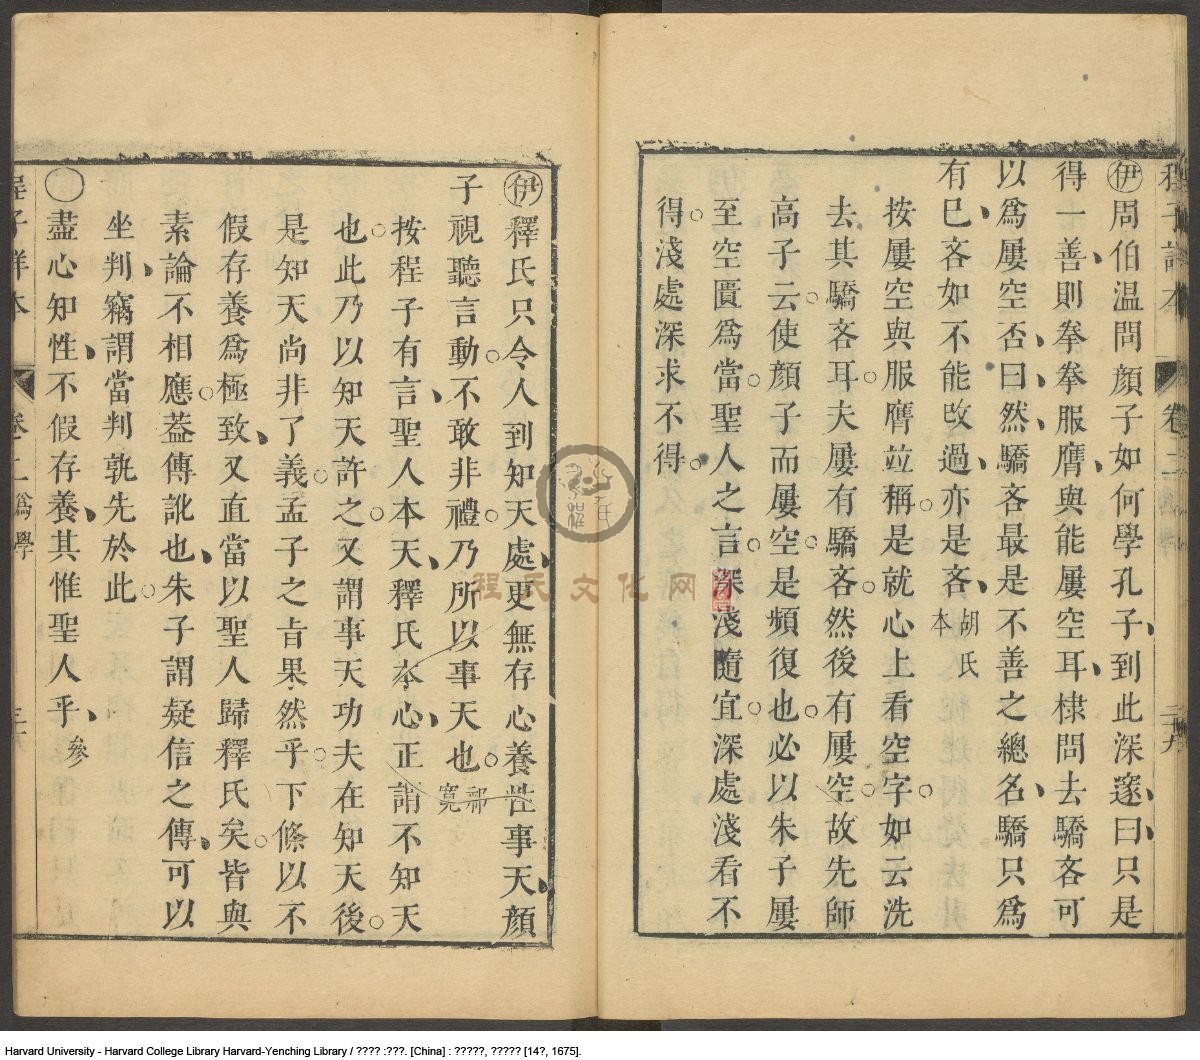 程子詳本
卷二
二十九
㊀伊周伯温問顔子如何學孔子到此深邃曰只是
得一善則拳拳服膺與能屢空耳棣問去驕吝可
以爲屢空否曰然驕吝最是不善之總名驕只爲
有己吝如不能改過亦是吝
胡氏
本
按屢空與服膺竝稱是就心上看空字如云洗
去其驕吝耳夫屢有驕吝然後有屢空故先師
高子云使顔子而屢空是頻復也必以朱子屢
至空匱爲當聖人之言深淺隨宜深處淺看不
得淺處深求不得
伊釋氏只令人到知天處更無存心養性事天顔
子視聽言動不敢非禮乃所以事天也
鄒
寛
按程子有言聖人本天釋氏本心正謂不知天
也此乃以知天許之又謂事天功夫在知天後
是知天尚非了義孟子之㫖果然乎下條以不
假存養爲極致又直當以聖人歸釋氏矣皆與
素論不相應葢傳訛也朱子謂疑信之傳可以
坐判竊謂當判孰先於此
〇盡心知性不假存養其惟聖人乎
參
程子詳本
卷二
爲學
三十
程氏文化网
Harvard University - Harvard College Library Harvard-Yenching Library / ???? :???. [China] : ?????, ????? [14?, 1675].